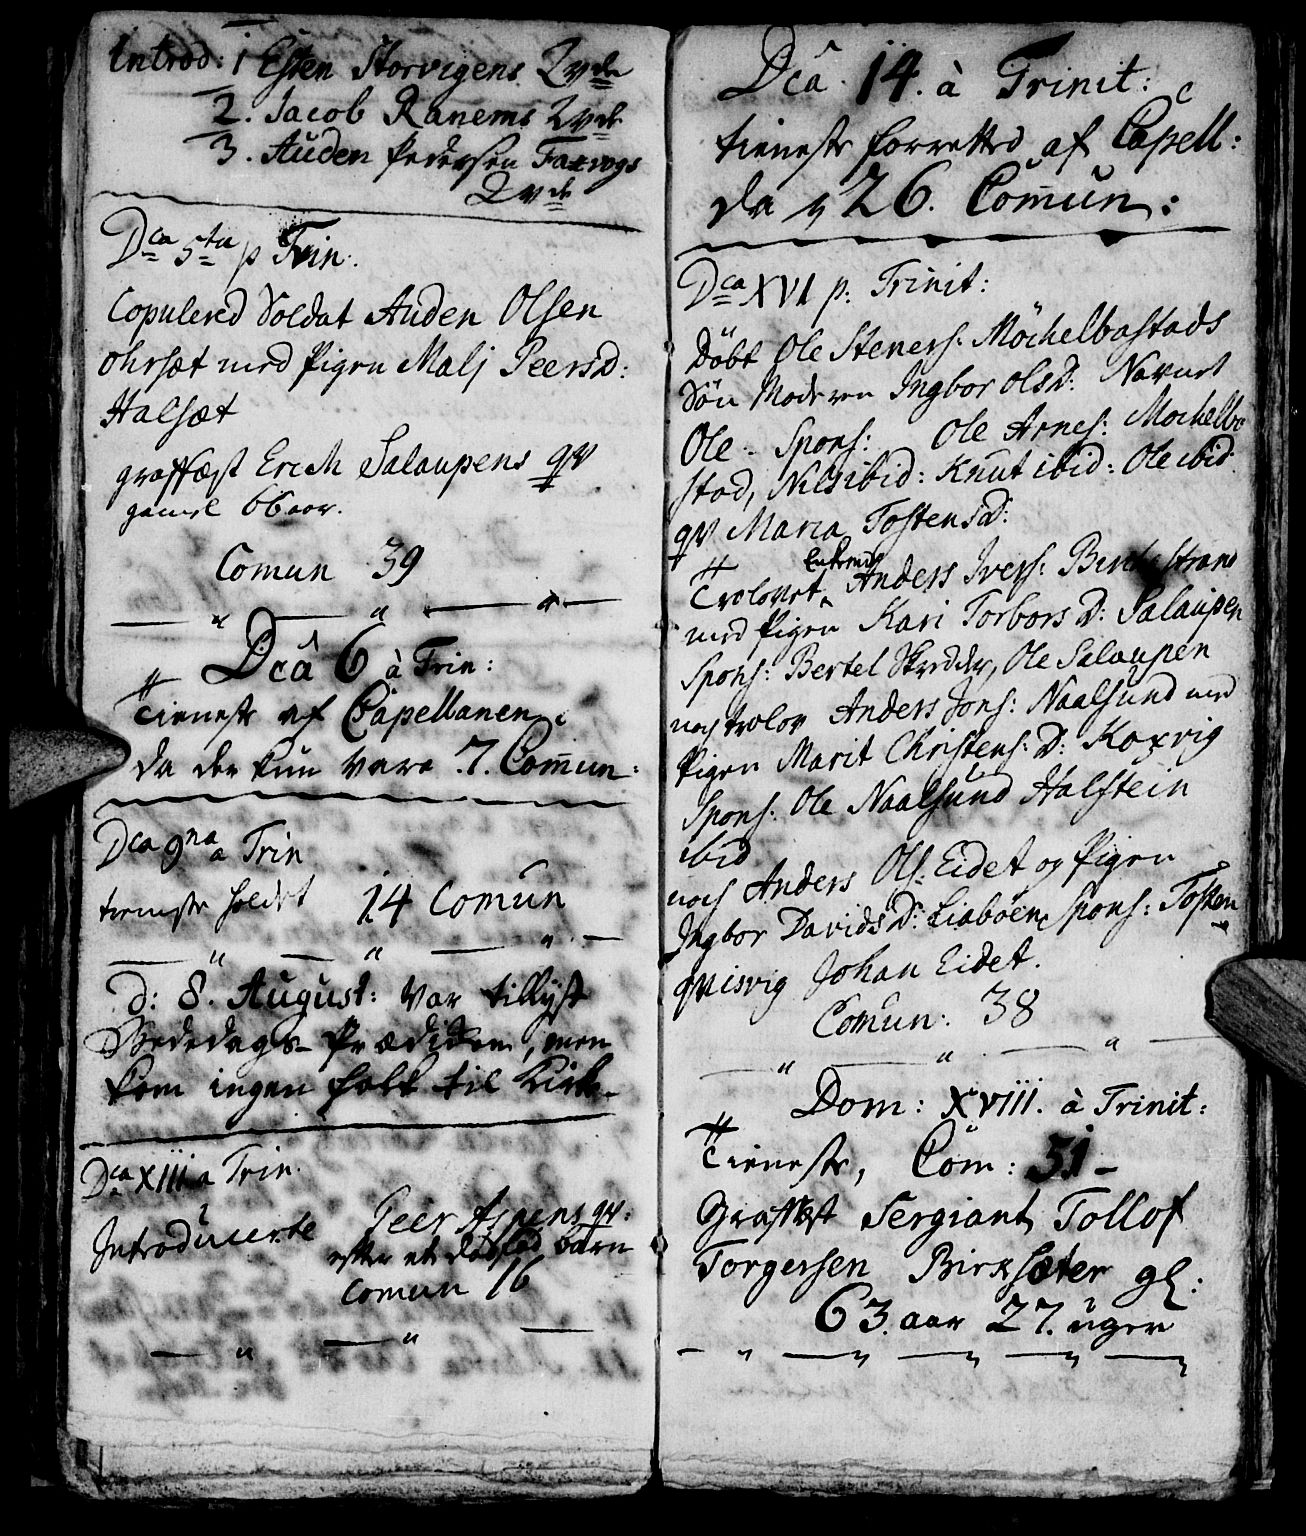 Introd: 1 Esten Storvigens Qvde
2. Jacob Ranems Qvde
3. Auden Pedersen Farvogs
Qvde
Dca 5ta p Trin.
Copulered Soldat Auden Olsen
Ohrsæt med Pigen Malj Peersd:
Halsæt
graffæst Erich Salaupens qv
gamel 66 aar.
Comun 39
Dca 6 à Trin:
Tieneste af Capellanen
da der kun vare 7. Comun:
Dca 9na a Trin
tieneste holdet 14 Comun
d: 8. August: var tillyst
Bededags-Prædiken, men
kom ingen folk til Kirke
Dca XIII a Trin.
Introducerte Peer Aspens qv:
efter et dødfød barn
Comun 16
Dca 14. à Trinit:
tieneste forretted af Capell:
da 26. Comun:
Dca XVI p. Trinit:
Döbt Ole Steners: Möchelbostads
Sön Moderen Ingbor Olsd: Navnet
Ole. Spons: Ole Arnes: Mochelbo
stad, Nils ibid: Knut ibid: Ole ibid:
qv Maria Tostensd:
Trolovet Enkemd Anders Ivers: strand
med Pigen Kari Torbors D: Salaupen
Spons: Bertel Skreder, Ole Salaupen
noch trolov Anders Jons: Naalsund med
Pigen Marit Christens: D: Koxvig
Spons: Ole Naalsund Halstein
ibid
noch Anders Ols: Eidet og Pigen
Ingbor Davids D: Liaböen, Spons: Tosten
qvisvig Johan Eidet.
Comun: 38
Dom: XVIII. à Trinit:
Tieneste, Com: 31-
Graffæst Sergiant Tollof
Torgersen Birksæter gl:
63. aar 27. uger